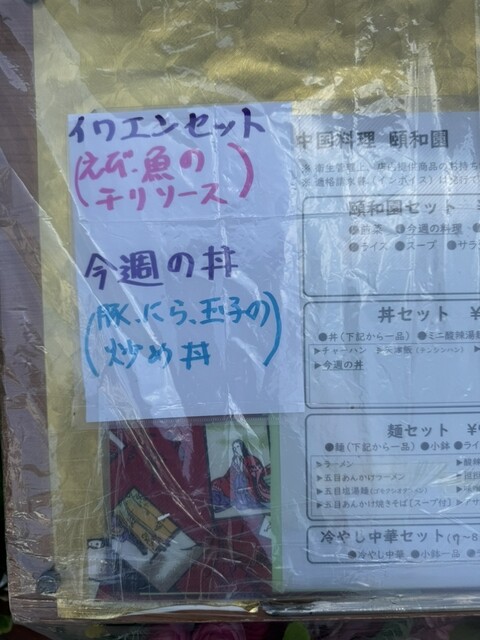 イワエンセット
(えび、魚の
チリソース)
今週の丼
(豚、にら、玉子の
炒め丼)
中国料理 頤和園
頤和園セット
●前菜 ●今週の料理
●ライス ●スープ ●サラ
丼セット
●丼(下記から一品) ●ミニ酸辣湯麺
▶チャーハン ▶天津飯(テンシンハン)
▶今週の丼
麺セット
●麺(下記から一品) ●小鉢 ●ライ
▶ラーメン
▶五目あんかけラーメン
▶五目塩湯麺
▶五目あんかけ焼きそば(スープ付)
冷やし中華セット
●冷やし中華 ●小鉢一品